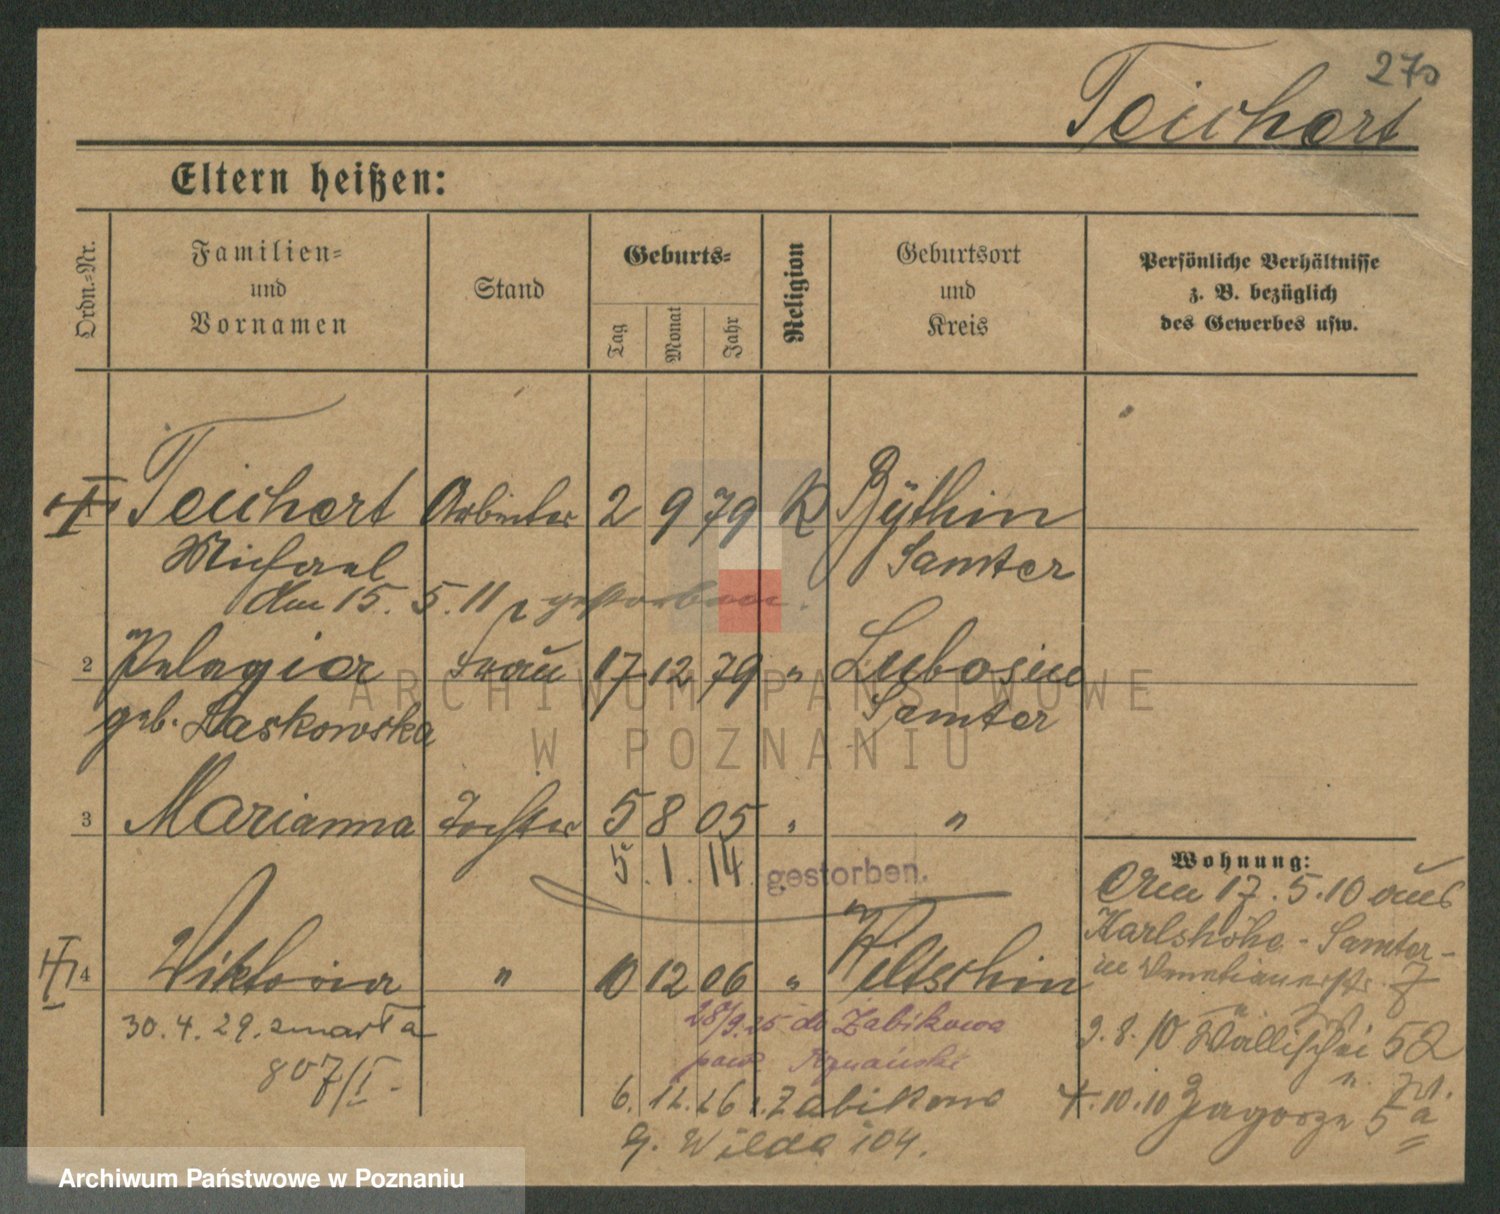 270
Teichert
Eltern heißen:
Ordn.-Nr.
Familien- und Vornamen
Stand
Geburts-
Tag
Monat
Jahr
Religion
Geburtsort und Kreis
Persönliche Verhältnisse z. B. bezüglich des Gewerbes usw.
Teichert Arbeiter 2 9 79 K Bythin
Michael Samter
Am 15. 5. 11 gestorben.
2 Pelagia Frau 17 12 79 " Lubosin
geb. Laskowska Samter
3 Marianna Tochter 5 8 05 " "
5. 1. 14 gestorben.
4 Viktoria " 10 12 06 " Wiltschin
30. 4. 29. zmarła
807/I
28/9.25 do Żabikowa
pow. Poznański
6. 12. 26 z Żabikowo
G. Wilda 104.
Wohnung:
Am 17. 5. 10 aus
Karlshöhe - Samter -
in Venetianerstr. 7
9. 8. 10 Wallischei 52
4. 10. 10 Zagorze 5a
ARCHIWUM PAŃSTWOWE
W POZNANIU
Archiwum Państwowe w Poznaniu